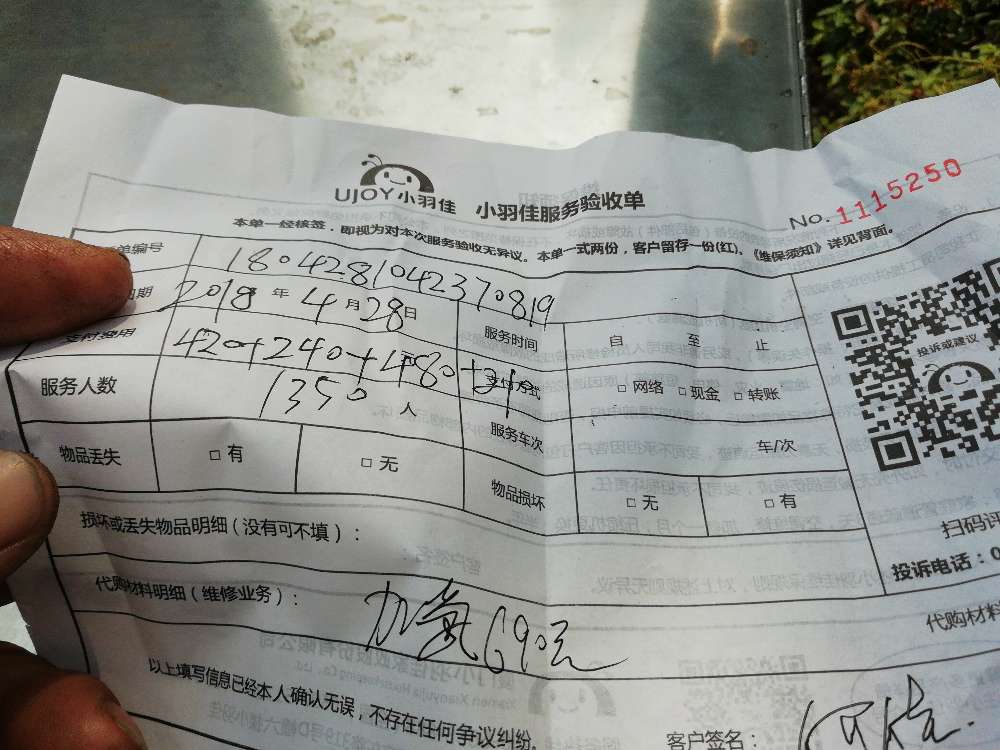 UJOY小羽佳 小羽佳服务验收单
No. 1115250
本单一经核签，即视为对本次服务验收无异议。本单一式两份，客户留存一份(红)。《维保须知》详见背面。
单编号 1804281042370819
日期 2018 年 4 月 28 日 服务时间 自 至 止
支付费用 420+240+480+210 支付方式 □ 网络 □ 现金 □ 转账
服务人数 1350 人 服务车次 车/次
物品丢失 □ 有 □ 无 物品损坏 □ 无 □ 有
投诉或建议
扫码评
投诉电话：0
损坏或丢失物品明细（没有可不填）：
代购材料明细（维修业务）： 加氟690元
代购材料
以上填写信息已经本人确认无误，不存在任何争议纠纷。
客户签名：